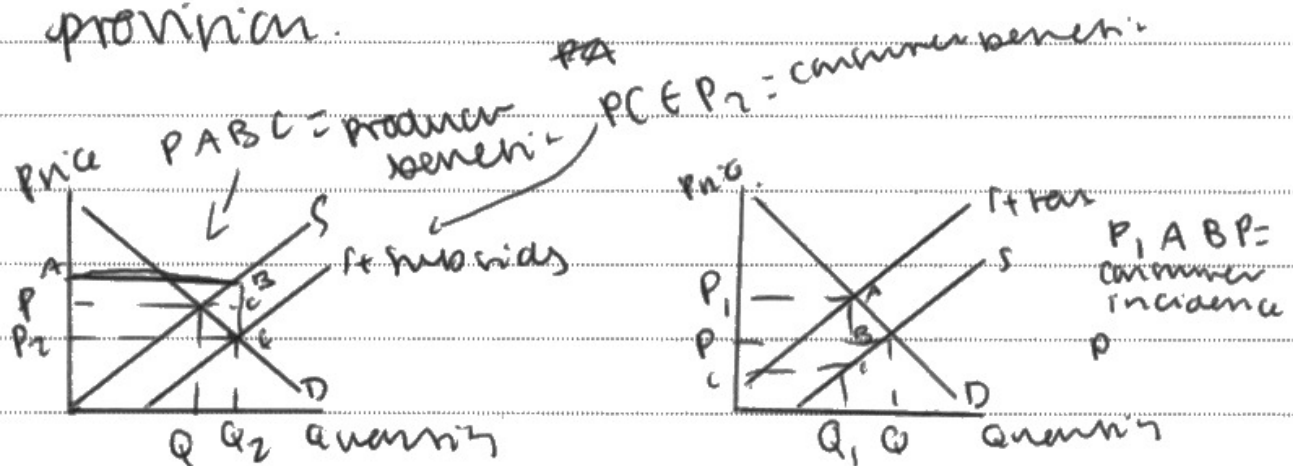 provision.
PABC = producer
benefit
PCEP2 = consumer benefit
Price
A
P
P2
S
S+ subsidy
B
C
E
D
Q Q2 Quantity
Price
P1
P
C
S+tax
S
A
B
C
D
Q1 Q Quantity
P1 A B P =
consumer
incidence
P